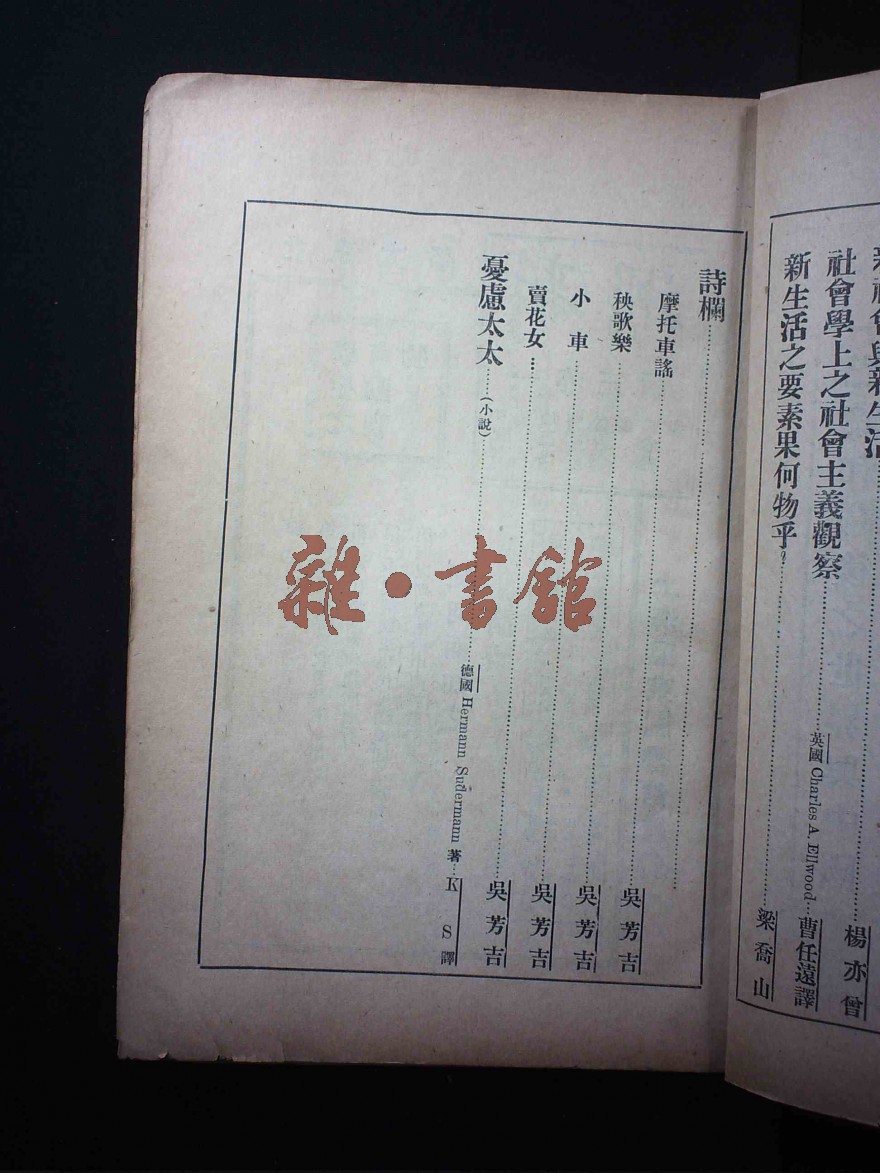 新社會與新生活……楊亦曾
社會學上之社會主義觀察……英國Charles A. Ellwood…曹任遠譯
新生活之要素果何物乎？……梁喬山
詩欄……
摩托車謠……吳芳吉
秧歌樂……吳芳吉
小車……吳芳吉
賣花女……吳芳吉
憂慮太太……(小說)……德國Hermann Sudermann著…K S譯
雜·書館